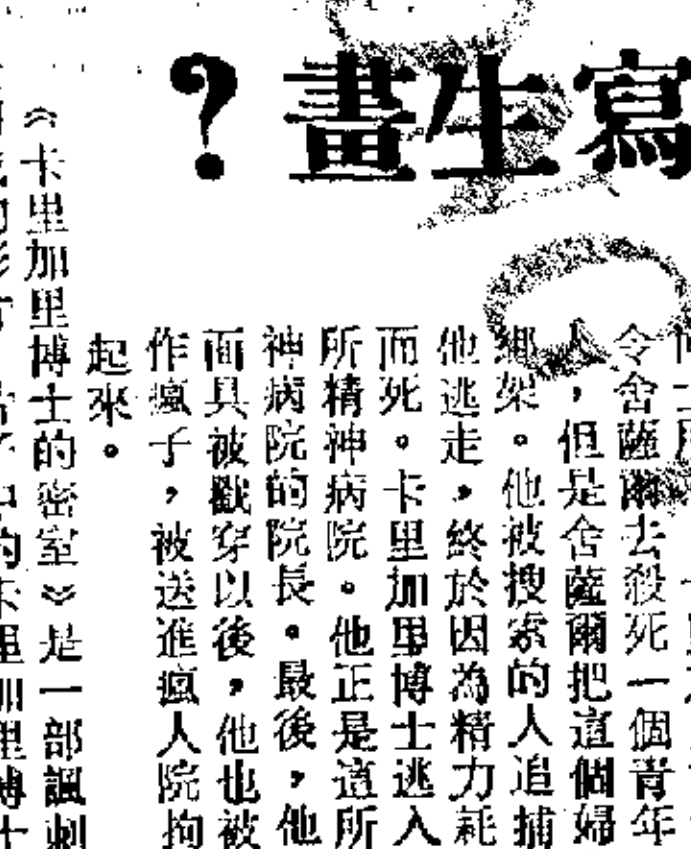 寫生畫?
令舍薩爾去殺死一個青年
人,但是舍薩爾把這個婦
綁架。他被搜索的人追捕
他逃走,終於因為精力耗
而死。卡里加里博士逃入
所精神病院。他正是這所
神病院的院長。最後,他
面具被戳穿以後,他也被
作瘋子,被送進瘋人院拘
起來。
《卡里加里博士的密室》是一部諷刺
的卡里加里博士